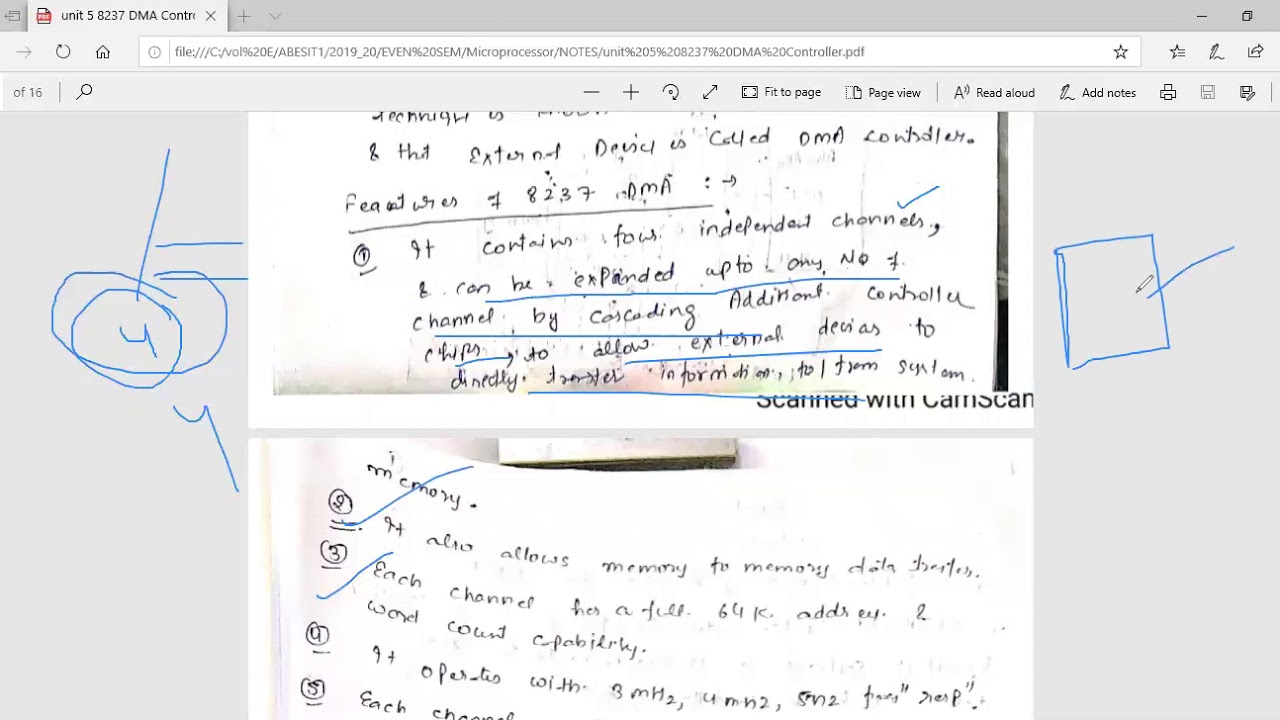 unit 5 8237 DMA Contro
file:///C:/vol%20E/ABESIT1/2019_20/EVEN%20SEM/Microprocessor/NOTES/unit%205%208237%20DMA%20Controller.pdf
of 16
Fit to page
Page view
Read aloud
Add notes
is
& that External Device is called DMA controller.
Features of 8237 DMA :→
① It contains four independent channels,
& can be expanded upto any No of
channel by cascading Additional controller
chips, to allow external devices to
directly transfer information, to/from system
Scanned with CamScan
memory.
② It also allows memory to memory data transfer.
③ Each channel has a full 64K address &
word count capability.
④ It operates with 3 MHz, 4 MHz, 5
⑤ Each channel
4
4